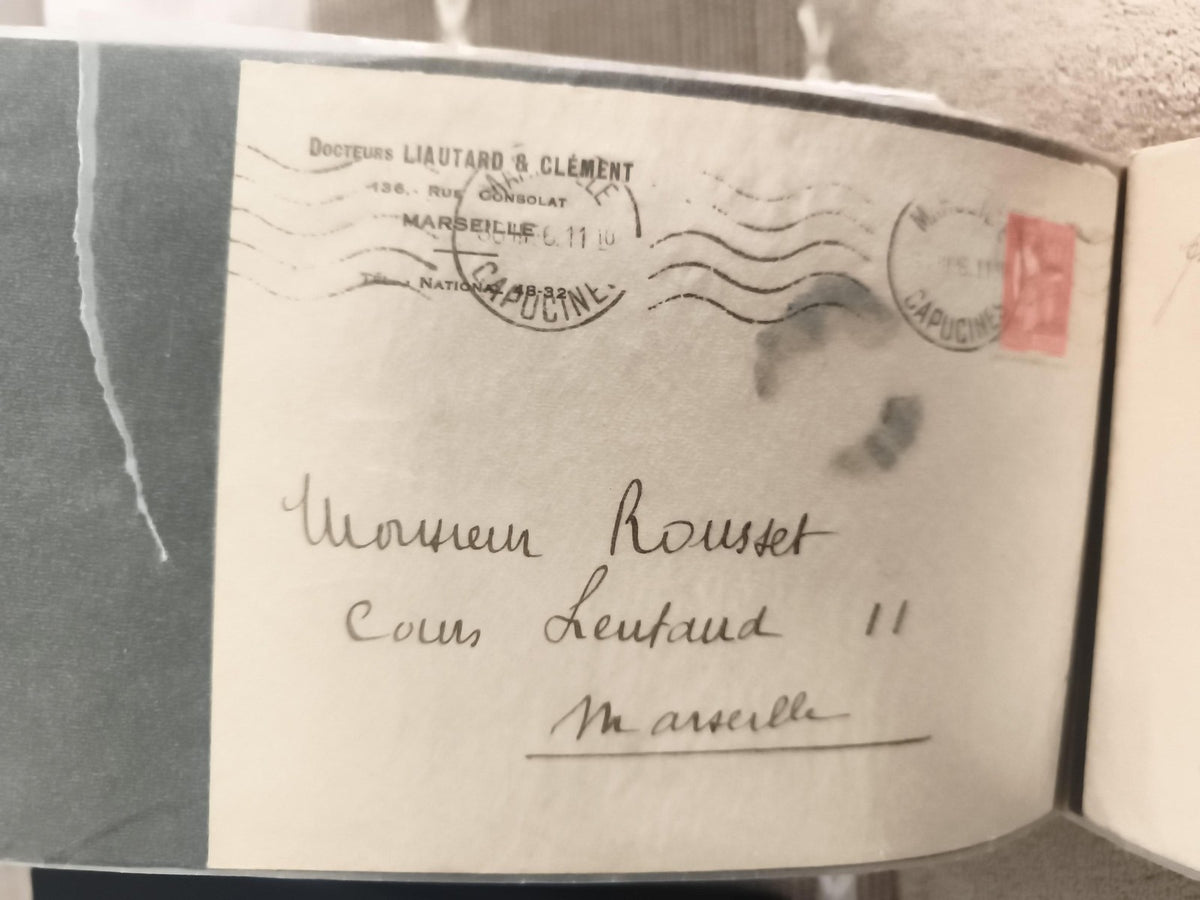 DOCTEURS LIAUTARD & CLÉMENT
136, RUE CONSOLAT
MARSEILLE
TÉL. NATIONAL 48-32
MARSEILLE
6. 11 10
CAPUCINES
CAPUCINES
Monsieur Rousset
Cours Lieutaud 11
Marseille